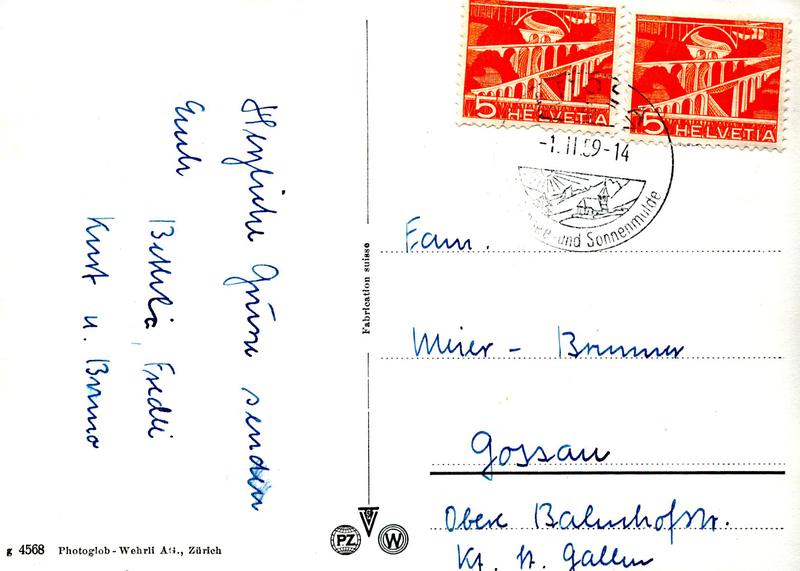 Herzliche Grüsse senden
Euch
Fredli
Kurt u. Bruno
5 HELVETIA
5 HELVETIA
-1.II.59-14
und Sonnenmulde
Fam.
Meier - Brunner
Gossau
Obere Bahnhofstr.
Kt. St. Gallen
Fabrication suisse
PZ
S
W
g 4568 Photoglob-Wehrli AG., Zürich